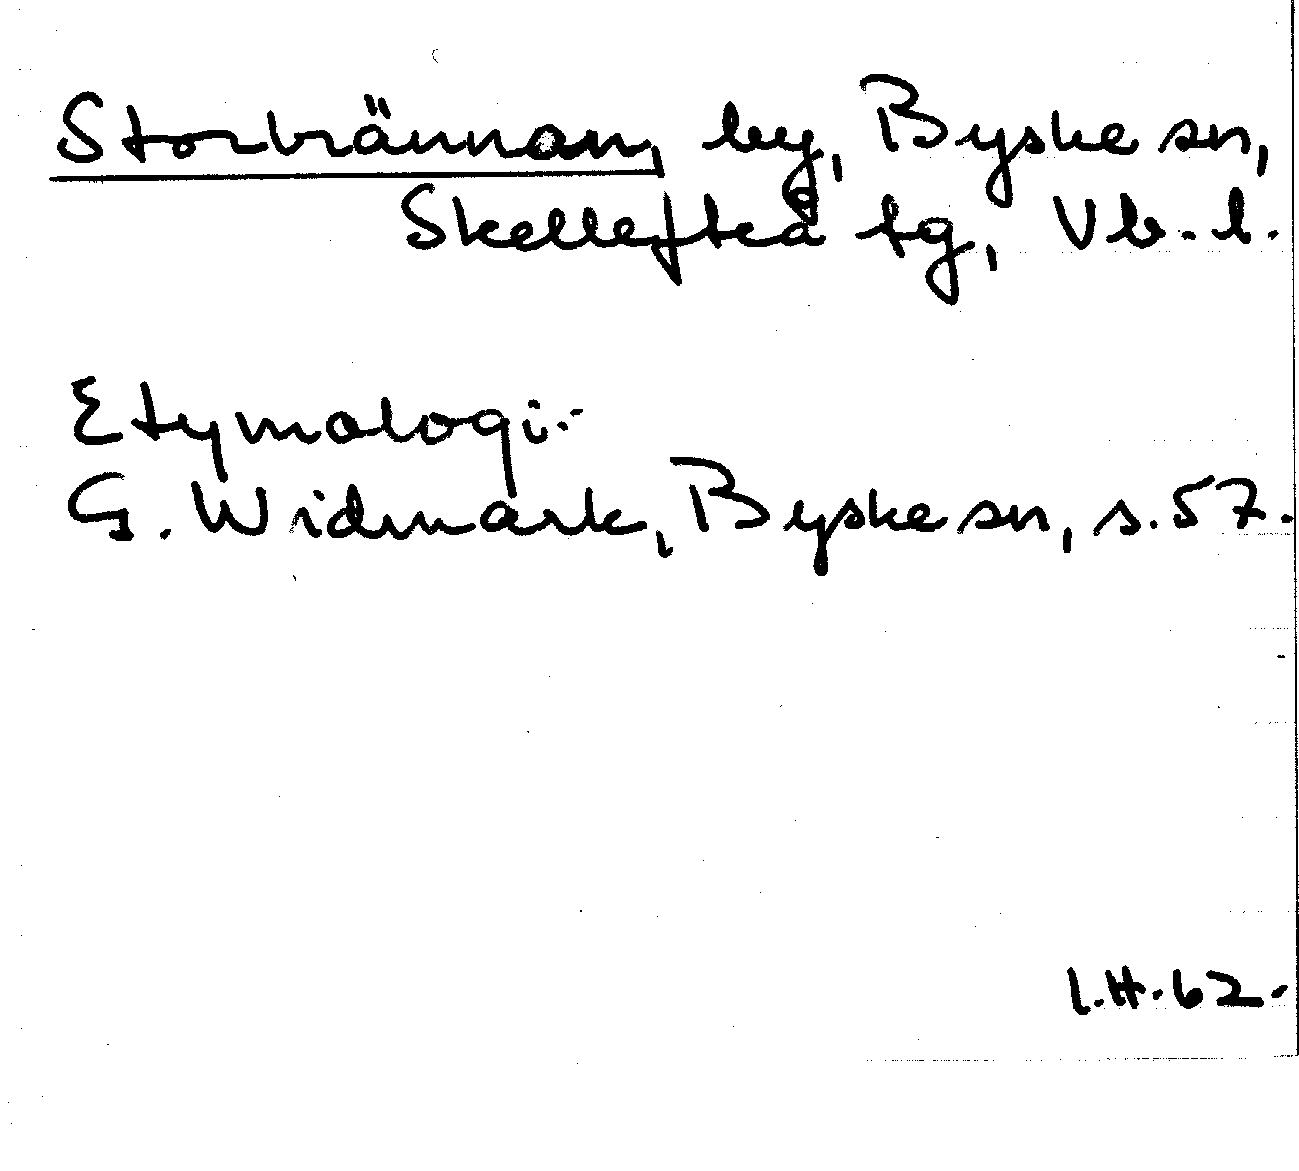 Storbrännan, by, Byske sn,
Skellefteå tg, Vb. l.
Etymologi:
G. Widmark, Byske sn, s. 57.
I.H. 62.